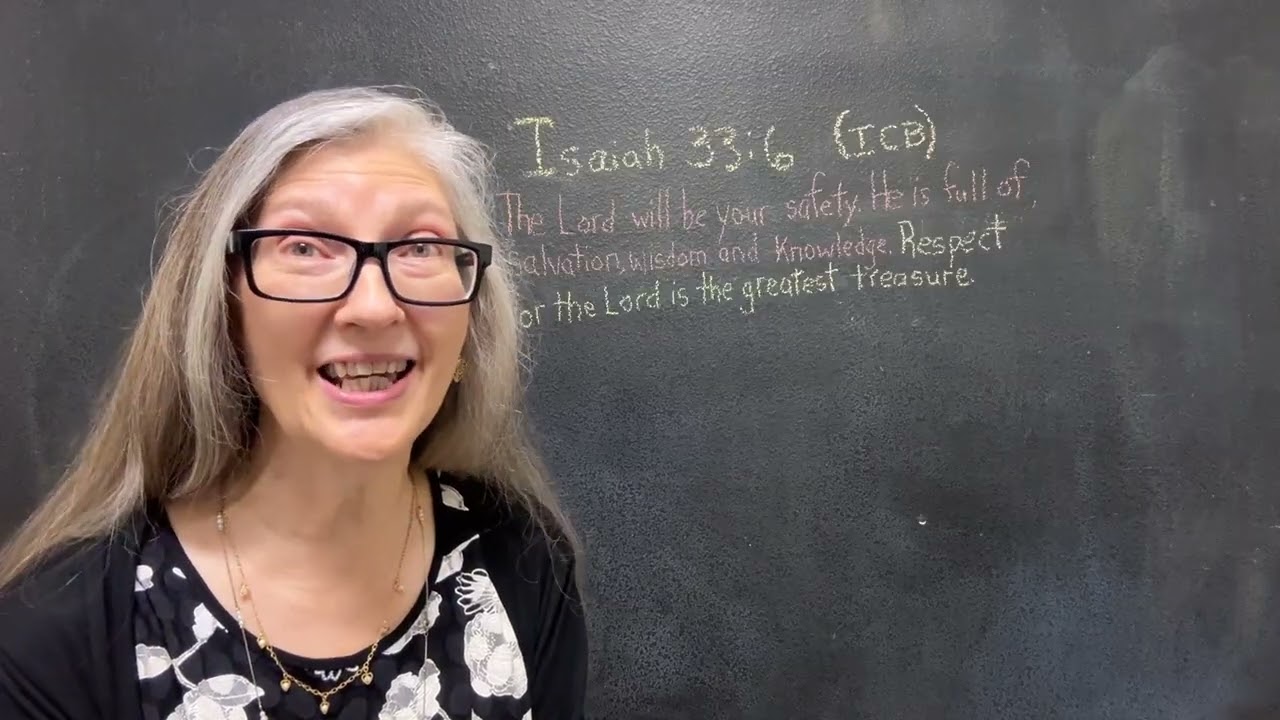 Isaiah 33:6 (ICB)
The Lord will be your safety. He is full of
salvation, wisdom and knowledge. Respect
or the Lord is the greatest treasure.